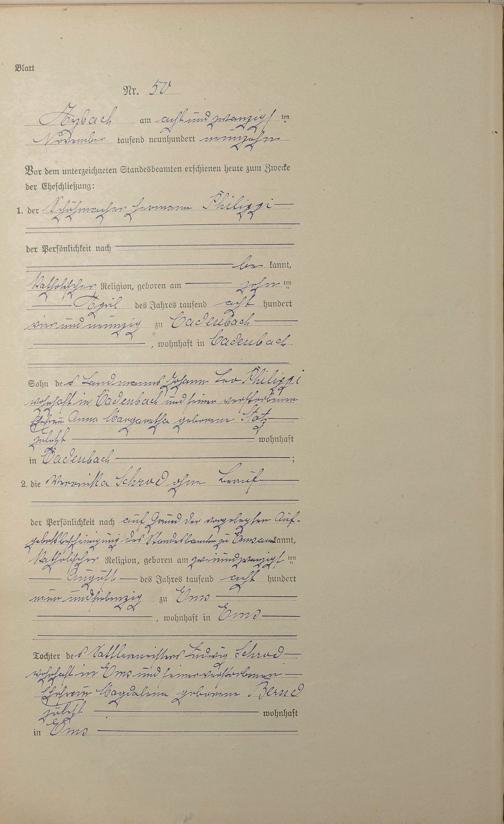 Blatt
Nr. 50
Arzbach am acht und zwanzigsten
November tausend neunhundert neunzehn
Vor dem unterzeichneten Standesbeamten erschienen heute zum Zwecke
der Eheschließung:
1. der Schuhmacher Hermann Philippi
der Persönlichkeit nach
be kannt,
katholischer Religion, geboren am zehnten
April des Jahres tausend acht hundert
vier und neunzig zu Cadenbach
, wohnhaft in Cadenbach
Sohn des Landmanns Johann Leo Philippi
wohnhaft in Cadenbach und seiner verstorbenen
Ehefrau Anna Margaretha geborene
zuletzt wohnhaft
in Cadenbach ;
2. die Veronika Schrod ohne Beruf
der Persönlichkeit nach auf Grund der vorgelegten Auf-
gebotsbescheinigung des Standesbeamten zu Ems anerkannt,
katholischer Religion, geboren am zweiundzwanzigsten
August des Jahres tausend acht hundert
neun und siebenzig zu Ems
, wohnhaft in Ems
Tochter des Sattlermeisters Ludwig Schrod
wohnhaft in Ems und seiner verstorbenen
Ehefrau Magdalena geborene Bernd
zuletzt wohnhaft
in Ems